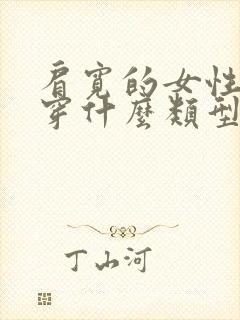 肩寬的女性
穿什麼類型
丁山河